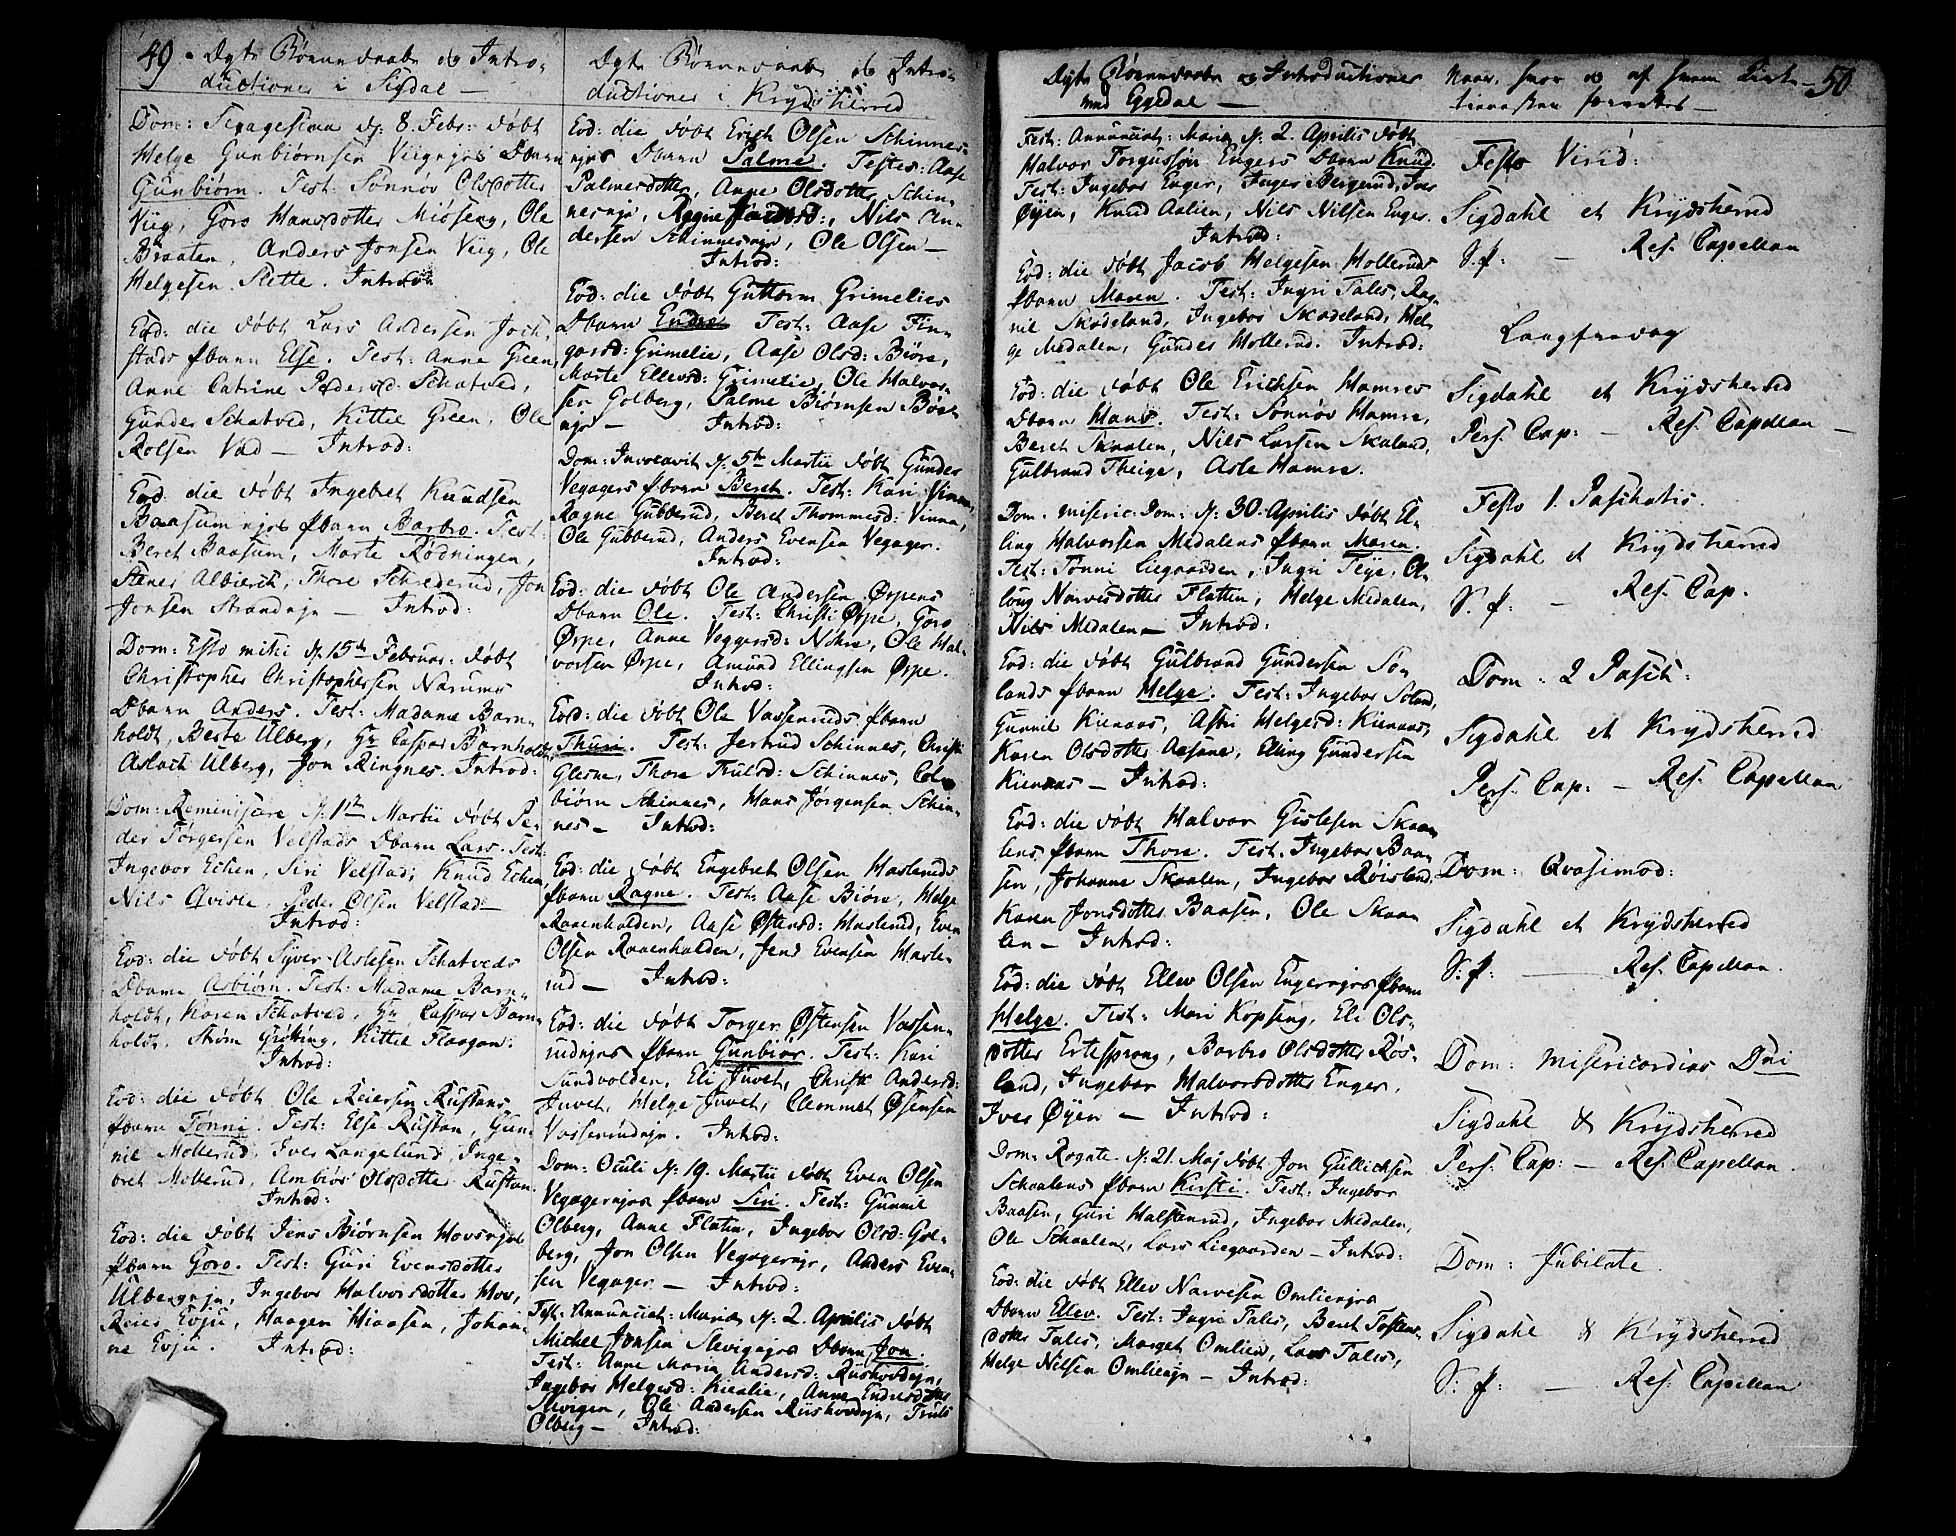 49. Ægte Børnedaabe og Intro-
ductioner i Sigdal —
Dom: Sexagesima d: 8. Febr: døbt
Helge Gunbiørnsen Viigejes Dbarn
Gunbiørn. Test: Sønnøv Olsdotter
Viig, Goro Hansdotter Miøseng, Ole
Braaten, Anders Jonsen Viig, Ole
Helgesen Slette. Introd:
Eod: die døbt Lars Andersen Joch-
stads Pbarn Else. Test: Anne Green,
Anne Catrine Pedersd: Schatved,
Gunder Schatved, Kittil Green, Ole
Rolsen Vad — Introd:
Eod: die døbt Ingebret Knudsen
Baasum ejes Pbarn Barbro. Test:
Beret Baasum, Marte Rødningen,
Stener Albierch, Thore Schrederud, Jon
Jonsen Strandeje — Introd:
Dom: Esto mihi d: 15de Februar: døbt
Christopher Christophersen Narums
Dbarn Anders. Test: Madame Barn-
holdt, Berte Ulberg, Hr Caspar Barnholdt,
Aslach Ulberg, Jon Ringnes. Introd:
Dom: Reminiscere d: 1ste Martii døbt Pe-
der Torgersen Velstads Dbarn Lars. Test:
Ingebor Echern, Siri Velstad, Knud Echern,
Nils Qvisle, Peder Olsen Velstad —
Introd:
Eod: die døbt Syver Aslesen Schatveds
Dbarn Asbiørn. Test: Madame Barn-
holdt, Karen Schatved, Hr Caspar Barn-
holdt, Strøm Grøting, Kittil Flaagan:
Introd:
Eod: die døbt Ole Reiersen Rustans
Pbarn Tønni. Test: Else Rustan, Gun-
nil Mollerud, Iver Langelund, Inge-
bret Mollerud, Ambiør Olsdotter Rustan.
Introd:
Eod: die døbt Jens Biørnsen Hovsejes
Pbarn Goro. Test: Guri Evensdotter
Ulbergeje, Ingebor Halvorsdotter Hov,
Reier Evju, Haagen Hiaasen, Johan-
ne Evju. Introd:
Ægte Børnedaabe og Intro-
ductioner i Krydsherred
Eod: die døbt Erich Olsen Schinnes-
ejes Dbarn Palme. Testes: Aase
Palmesdotter, Anne Olsdotter Schin-
neseje, Ragne, Nils An-
dersen Schinneseje, Ole Olsen —
Introd:
Eod: die døbt Guttorm Grimelies
Dbarn Endre. Test: Aase Fin-
garsd: Grimelie, Aase Olsd: Biøre,
Marte Ellevsd: Grimelie, Ole Halvor-
sen Golberg, Palme Biørnsen Bøer
eje — Introd:
Dom: Invocavit d: 5te Martii døbt Gunder
Vegagers Pbarn Beret. Test: Kari Vinna,
Ragne Gubberud, Beret Thommesd: Vinna,
Ole Gubberud, Anders Evensen Vegager.
Introd:
Eod: die døbt Ole Andersen Ørpens
Dbarn Ole. Test: Christi Ørpe, Goro
Ørpe, Anne Veggersd: Nøkre, Ole Hal-
vorsen Ørpe, Amund Ellingsen Ørpe.
Introd:
Eod: die døbt Ole Vasseruds Pbarn
Thuri. Test: Jertrud Schinnes, Christi
Glesne, Thore Trulsd: Schinnes, Col-
biørn Schinnes, Hans Jørgensen Schin-
nes — Introd:
Eod: die døbt Engebret Olsen Hasleruds
Pbarn Ragne. Test: Aase Biøre, Helge
Raaenholden, Aase Østensd: Haslerud, Even
Olsen Raaenholden, Jens Evensen Hasle-
rud — Introd:
Eod: die døbt Torger Østensen Vassen-
rudejes Pbarn Gunbiør. Test: Kari
Sundvolden, Eli Juvet, Christi Andersd:
Juvet, Helge Juvet, Clemmet Østensen
Vassenrudeje. Introd:
Dom: Oculi d: 19. Martii døbt Even Olsen
Vegagerejes Pbarn Siri. Test: Gunnil
Olberg, Anne Flatin, Ingebor Olsd: Gol-
berg, Jon Olsen Vegagereje, Anders Even-
sen Vegager — Introd:
Fest: Annunciat: Mariæ d: 2. Aprilis døbt
Michel Jonsen Slevigejes Dbarn Jon.
Test: Anne Maria Andersd: Ruskovdeje,
Ingebor Helgesd: Kiealie, Anne Endresdotter
Slevigen, Ole Andersen Ruskovdeje, Truls
Olberg — Introd:
Ægte Børnedaabe og Introductioner
med Eggedal —
Fest: Annunciat: Mariæ d: 2. Aprilis døbt
Halvor Torgussøn Engers Dbarn Knud.
Test: Ingebor Enger, Inger Bergerud, Iver
Øyen, Knud Aalien, Nils Nilsen Enger.
Introd:
Eod: die døbt Jacob Helgesen Holleruds
Pbarn Maren. Test: Ingri Tales, Rag-
nil Skadeland, Ingebor Skadeland, Hel-
ge Medalen, Gunder Hollerud. Introd:
Eod: die døbt Ole Erichsen Hamres
Dbarn Hans. Test: Sønnøv Hamre,
Beret Skaalen, Nils Larsen Skaland,
Gulbrand Theige, Asle Hamre.
Dom. Miseric: Dom: d: 30. Aprilis døbt El-
ling Halvorsen Medalens Pbarn Maren.
Test: Tønni Liegaarden, Ingri Teije, O-
loug Narvesdotter Flatten, Helge Medalen,
Nils Medalen — Introd:
Eod: die døbt Gulbrand Gundersen So-
lands Pbarn Helge. Test: Ingebor Soland,
Gunnil Kienaas, Astri Helgesd: Kienaas,
Karen Olsdotter Aasane, Elling Gundersen
Kienaas — Introd:
Eod: die døbt Halvor Gislesen Skaa-
lens Pbarn Thore. Test: Ingebor Baa-
sen, Johanne Skaalen, Ingebor Røisland,
Karen Jonsdotter Baasen, Ole Skaa-
len — Introd:
Eod: die døbt Ellev Olsen Engerejes Pbarn
Helge. Test: Mari Kopseng, Eli Ols-
dotter Ertesprang, Barbro Olsdotter Røs-
land, Ingebor Halvorsdotter Enger,
Iver Øyen — Introd:
Dom: Rogate d: 21. Maj døbt Jon Gullichsen
Schaalens Pbarn Kirsti. Test: Ingebor
Baasen, Guri Halstenrud, Ingebor Medalen,
Ole Schaalen, Lars Liegaarden — Introd:
Eod: die døbt Ellev Narvesen Omliesejes
Dbarn Ellev. Test: Ingri Tales, Beret Tostens-
dotter Tales, Marget Omlien, Lars Tales,
Helge Nilsen Omlieeje — Introd:
Naar, hvor og af hvem Tieneste- 50
tienesten forrettet —
Festo Virid:
Sigdahl et Krydsherred
S. P: — Res. Capellan
Langfredag
Sigdahl et Krydsherred
Pers. Cap: — Res. Capellan —
Festo 1. Paschatis.
Sigdahl et Krydsherred
S. P: — Res. Cap.
Dom: 2 Pasch:
Sigdahl et Krydsherred
Pers. Cap: — Res. Capellan
Dom: Qvasimod:
Sigdahl et Krydsherred
S: P: — Res. Capellan.
Dom: Misericordias Dni
Sigdahl & Krydsherred
Pers. Cap: — Res. Capellan.
Dom: Jubilate
Sigdahl & Krydsherred
S: P: — Res. Capellan